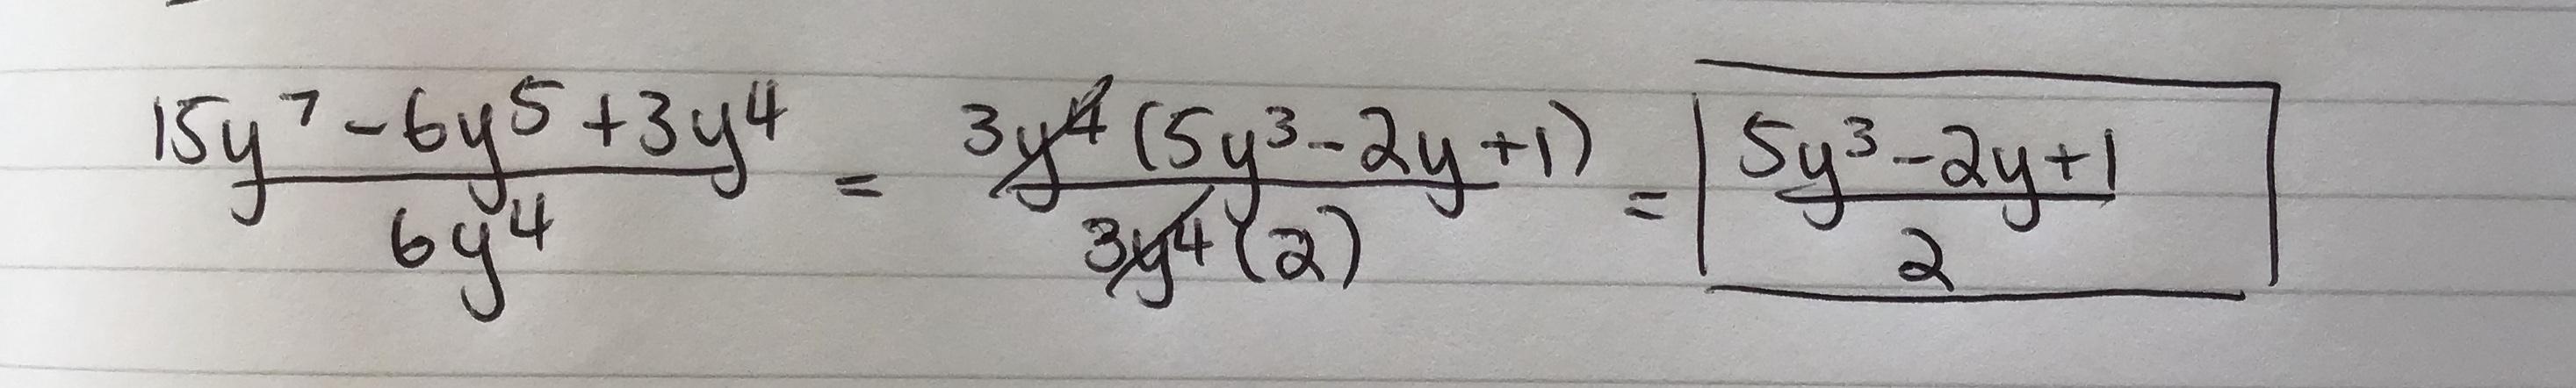 15y⁷ - 6y⁵ + 3y⁴ / 6y⁴ = 3y⁴ (5y³ - 2y + 1) / 3y⁴ (2) = 5y³ - 2y + 1 / 2